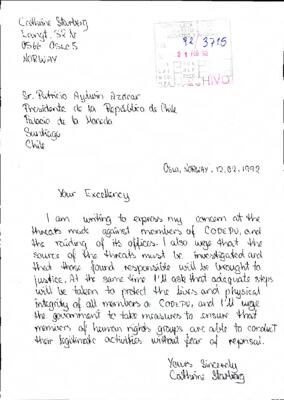 Cathrine Starberg
Langt. 52 N
0566 Oslo 5
NORWAY
92 3715
21 FEB 92
HIVO
Sr. Patricio Aylwin Azócar
Presidente de la República de Chile
Palacio de la Moneda
Santiago
Chile
Oslo, NORWAY, 12.02.1992
Your Excellency
I am writing to express my concern at the
threats made against members of CODEPU, and
the raiding of its offices. I also urge that the
source of the threats must be investigated and
that those found responsible will be brought to
justice. At the same time I'll ask that adequate steps
will be taken to protect the lives and physical
integrity of all members of CODEPU, and I'll urge
the government to take measures to ensure that
members of human rights groups are able to conduct
their legitimate activities without fear of reprisal.
Yours Sincerely
Cathrine Starberg